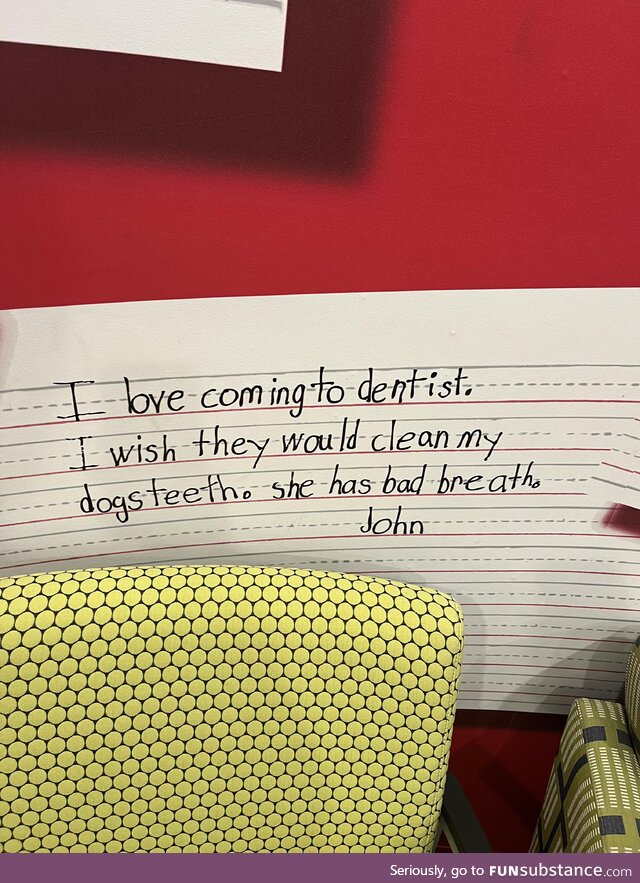 I love coming to dentist.
I wish they would clean my
dogs teeth. she has bad breath.
John
Seriously, go to FUNsubstance.com